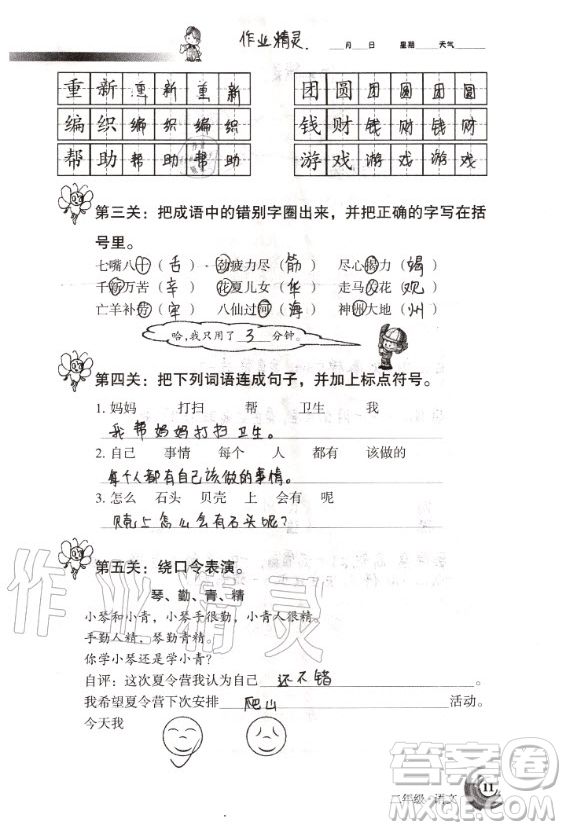 作业精灵.
月 日 星期 天气
重新重新重新 团圆团圆团圆
编织编织编织 钱财钱财钱财
帮助帮助帮助 游戏游戏游戏
第三关：把成语中的错别字圈出来，并把正确的字写在括
号里。
七嘴八十（舌） 劲疲力尽（筋） 尽心揭力（竭）
千新万苦（辛） 花夏儿女（华） 走马又花（观）
亡羊补劳（牢） 八仙过河（海） 神洲大地（州）
哈，我只用了 3 分钟。
第四关：把下列词语连成句子，并加上标点符号。
1. 妈妈 打扫 帮 卫生 我
我帮妈妈打扫卫生。
2. 自己 事情 每个 人 都有 该做的
每个人都有自己该做的事情。
3. 怎么 石头 贝壳 上 会有 呢
贝壳上怎么会有石头呢？
第五关：绕口令表演。
琴、勤、青、精
小琴和小青，小琴手很勤，小青人很精。
手勤人精，琴勤青精。
你学小琴还是学小青？
自评：这次夏令营我认为自己 还不错
我希望夏令营下次安排 爬山 活动。
今天我
作业精灵
作业精灵
11
二年级·语文